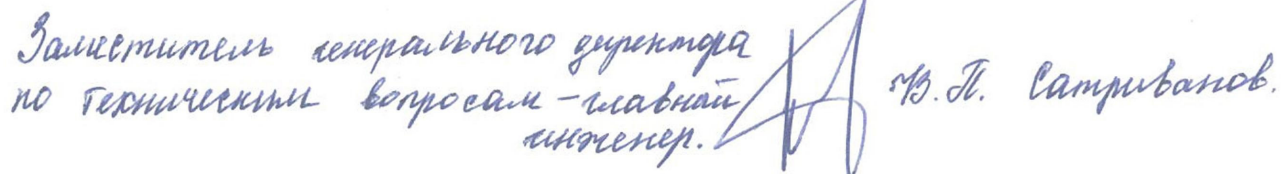 Заместитель генерального директора
по техническим вопросам – главный В.П. Сатриванов.
инженер.